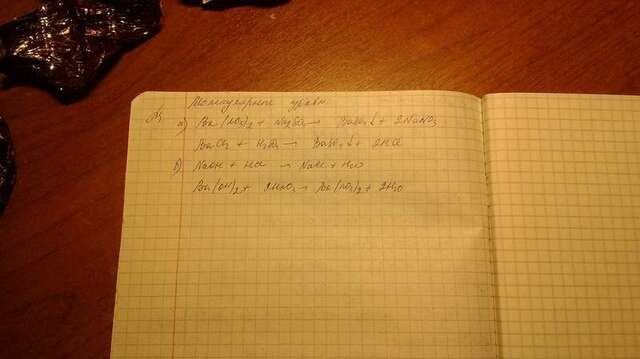 Молекулярные уравн
№5
а) Ba(NO3)2 + Na2SO4 → BaSO4↓ + 2NaNO3
BaCl2 + H2SO4 → BaSO4↓ + 2HCl
б) NaOH + HCl → NaCl + H2O
Ba(OH)2 + 2HNO3 → Ba(NO3)2 + 2H2O